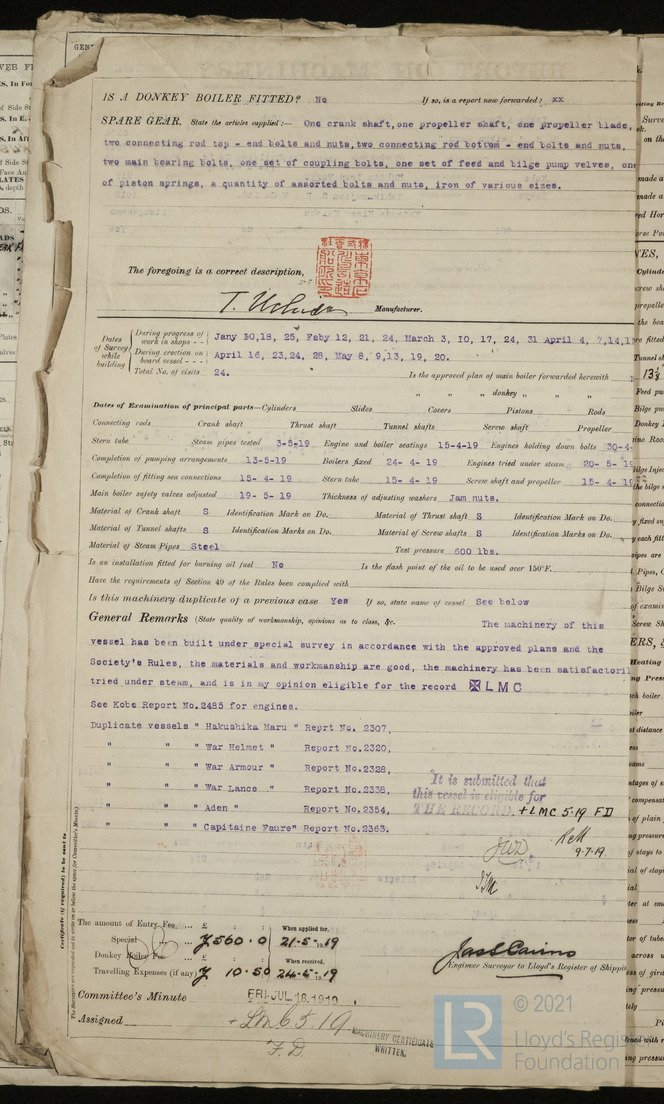 IS A DONKEY BOILER FITTED? No If so, is a report now forwarded? xx
SPARE GEAR. State the articles supplied:— One crank shaft, one propeller shaft, one propeller blade,
two connecting rod top - end bolts and nuts, two connecting rod bottom - end bolts and nuts,
two main bearing bolts, one set of coupling bolts, one set of feed and bilge pump valves, one
of piston springs, a quantity of assorted bolts and nuts, iron of various sizes.
The foregoing is a correct description,
Manufacturer.
Dates of Survey while building
During progress of work in shops - - Jany 10,18, 25, Feby 12, 21, 24, March 3, 10, 17, 24, 31 April 4, 7,14,15
During erection on board vessel - - - April 16, 23,24, 28, May 8, 9,13, 19, 20.
Total No. of visits 24. Is the approved plan of main boiler forwarded herewith
" " " donkey " " "
Dates of Examination of principal parts—Cylinders Slides Covers Pistons Rods
Connecting rods Crank shaft Thrust shaft Tunnel shafts Screw shaft Propeller
Stern tube Steam pipes tested 3-5-19 Engine and boiler seatings 15-4-19 Engines holding down bolts 30-4-
Completion of pumping arrangements 13-5-19 Boilers fixed 24- 4- 19 Engines tried under steam 20- 5- 19
Completion of fitting sea connections 15- 4- 19 Stern tube 15- 4- 19 Screw shaft and propeller 15- 4- 19
Main boiler safety valves adjusted 19- 5- 19 Thickness of adjusting washers Jam nuts.
Material of Crank shaft S Identification Mark on Do. Material of Thrust shaft S Identification Mark on Do.
Material of Tunnel shafts S Identification Marks on Do. Material of Screw shafts S Identification Marks on Do.
Material of Steam Pipes Steel Test pressure 600 lbs.
Is an installation fitted for burning oil fuel No Is the flash point of the oil to be used over 150°F.
Have the requirements of Section 49 of the Rules been complied with
Is this machinery duplicate of a previous case Yes If so, state name of vessel See below
General Remarks (State quality of workmanship, opinions as to class, &c. The machinery of this
vessel has been built under special survey in accordance with the approved plans and the
Society's Rules, the materials and workmanship are good, the machinery has been satisfactoril
tried under steam, and is in my opinion eligible for the record ✠LMC
See Kobe Report No.2485 for engines.
Duplicate vessels " Hakushika Maru " Reprt No. 2307,
" " " War Helmet " Report No.2320,
" " " War Armour " Report No.2328,
" " " War Lance " Report No.2338,
" " " Aden " Report No.2354,
" " " Capitaine Faure" Report No.2363.
It is submitted that
this vessel is eligible for
THE RECORD. + LMC 5.19 FD
9.7.19.
The amount of Entry Fee £ : : When applied for,
Special ... ¥ 560.0 21.5.1919
Donkey Boiler Fee ... £ : : When received,
Travelling Expenses (if any) ¥ 10.50 24.5.1919
Engineer Surveyor to Lloyd's Register of Shipping
Committee's Minute FRI. JUL. 18. 1919
Assigned + LMC 5.19
F.D.
MACHINERY CERTIFICATE
WRITTEN.
LR
© 2021
Lloyd's Regis
Foundation